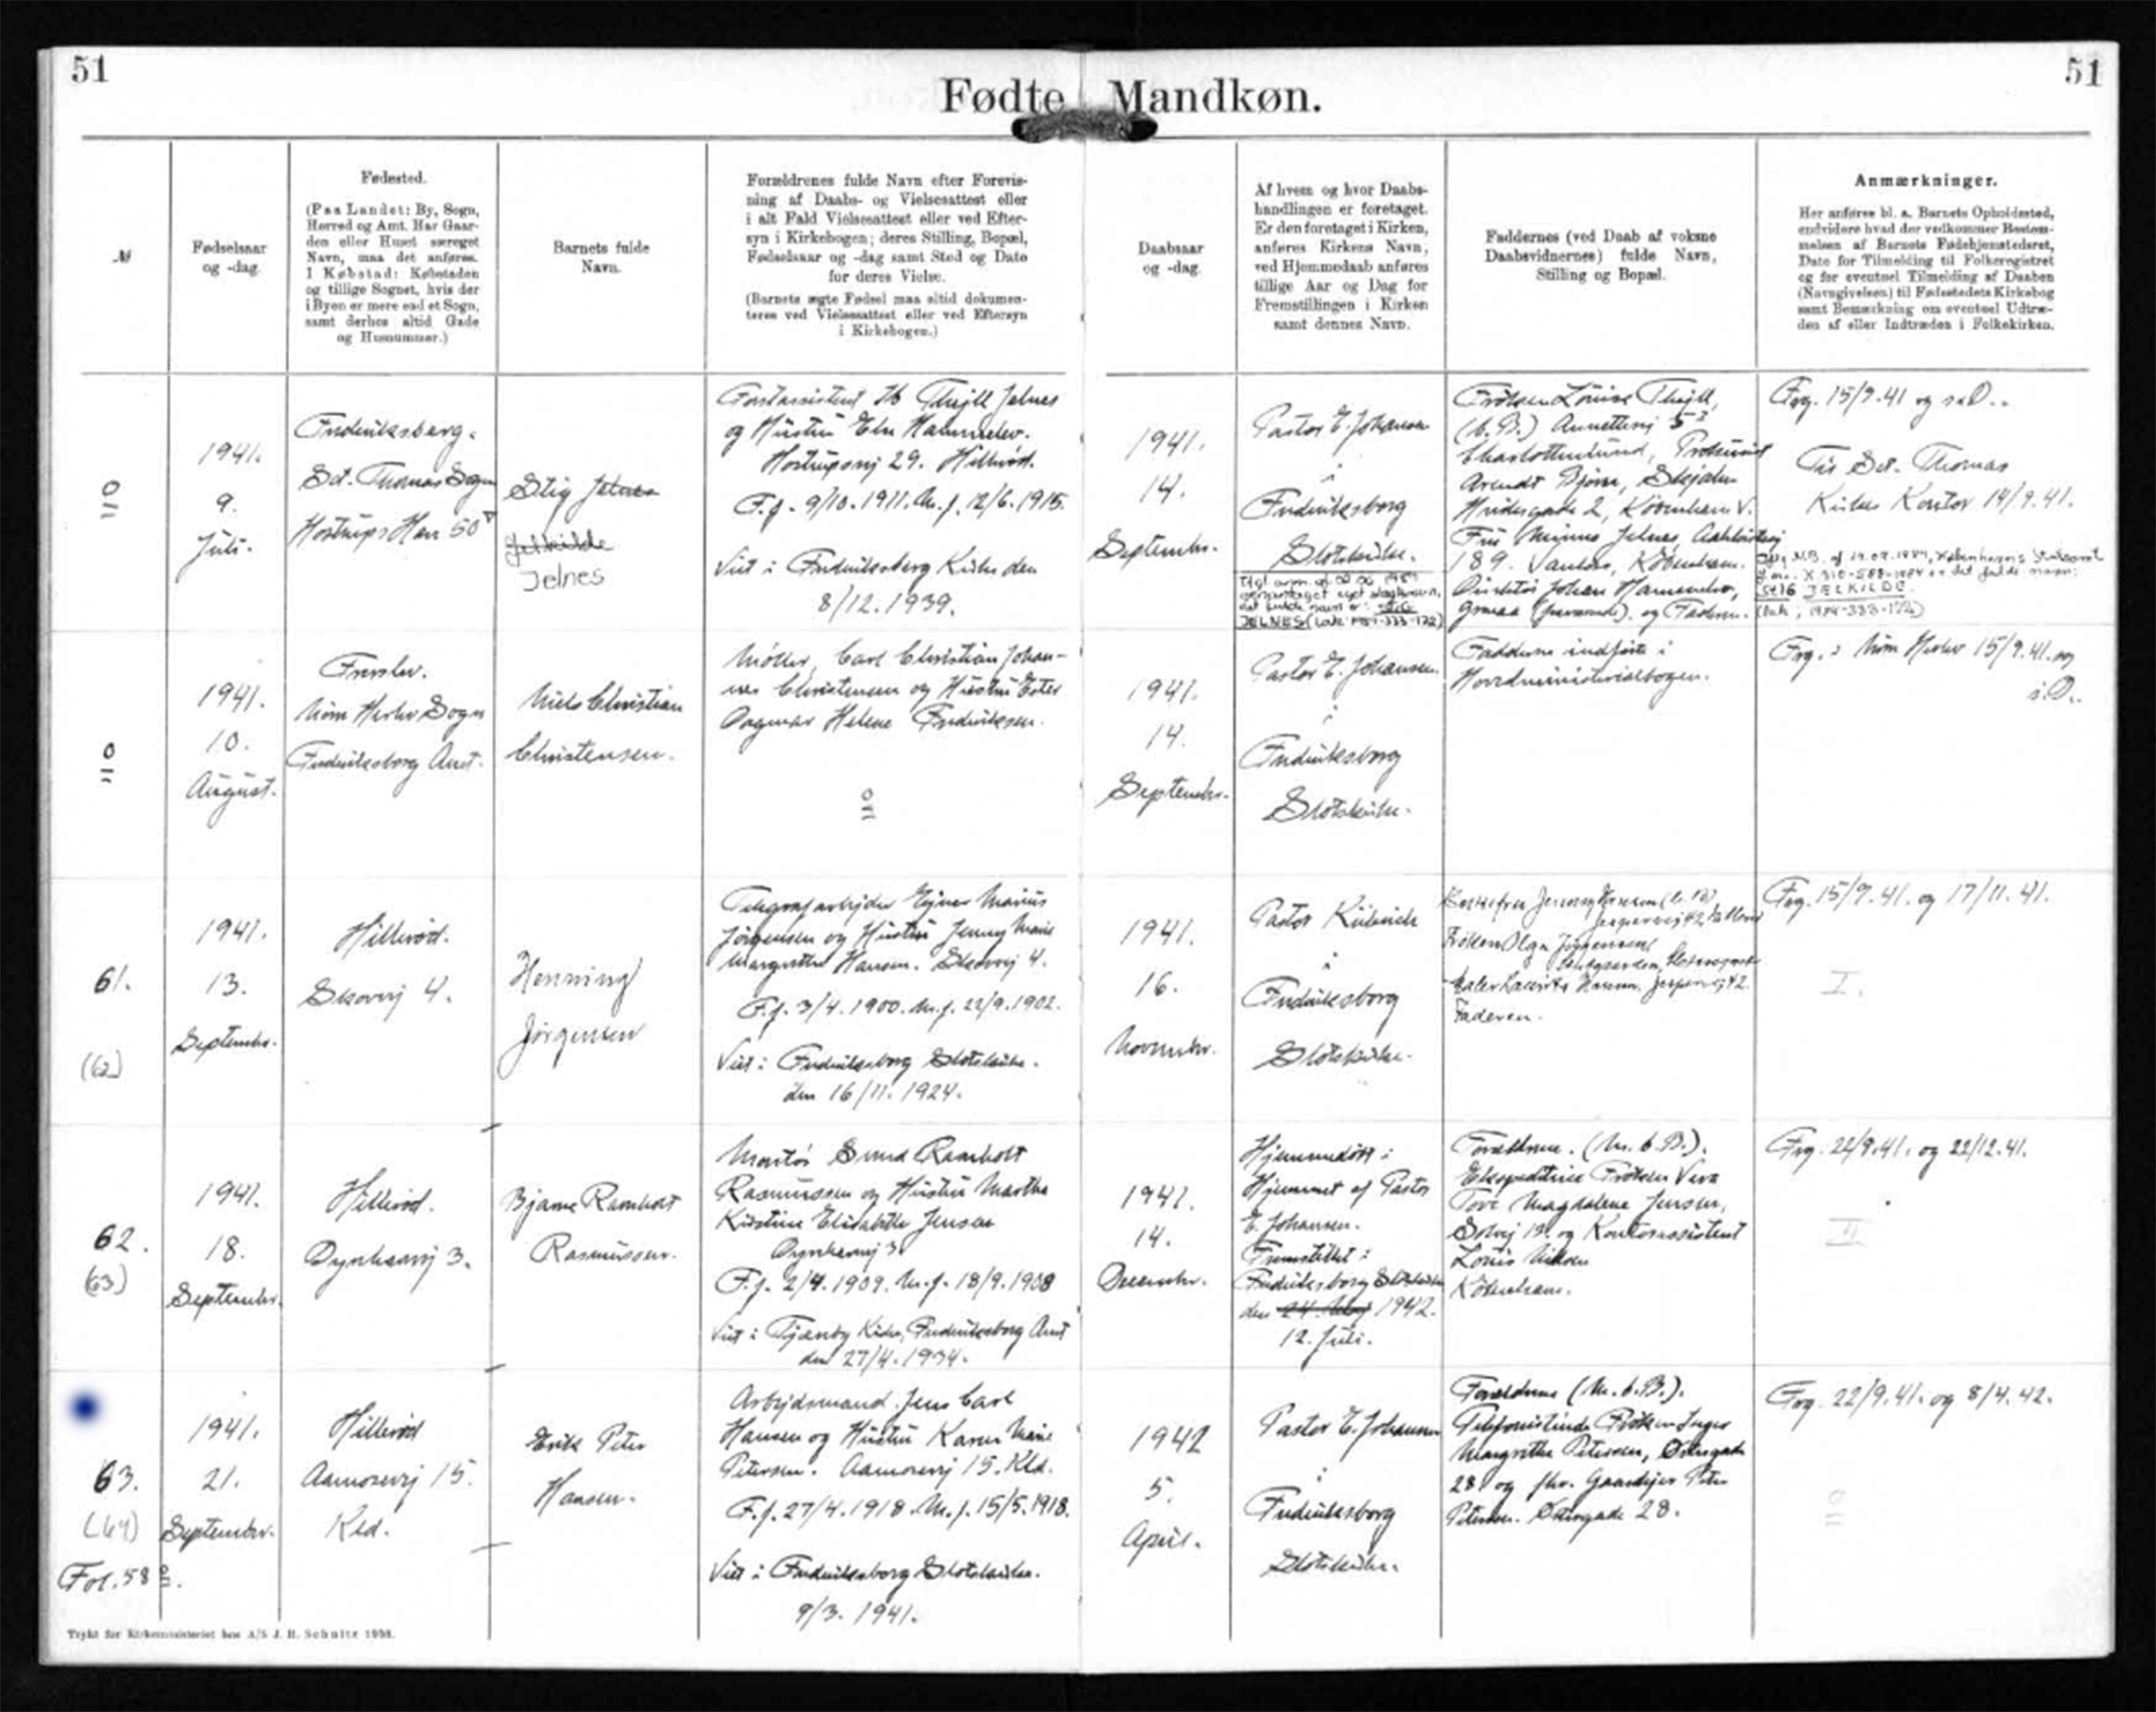 51
51
Fødte Mandkøn.
№
Fødselsaar
og -dag.
Fødested.
(Paa Landet: By, Sogn,
Herred og Amt. Har Gaar-
den eller Huset særeget
Navn, maa det anføres.
I Købstad: Købstaden
og tillige Sognet, hvis der
i Byen er mere end et Sogn,
samt derhos altid Gade
og Husnummer.)
Barnets fulde
Navn.
Forældrenes fulde Navn efter Forevis-
ning af Daabs- og Vielsesattest eller
i alt Fald Vielsesattest eller ved Efter-
syn i Kirkebogen; deres Stilling, Bopæl,
Fødselsaar og -dag samt Sted og Dato
for deres Vielse.
(Barnets ægte Fødsel maa altid dokumen-
teres ved Vielsesattest eller ved Eftersyn
i Kirkebogen.)
Daabsaar
og -dag.
Af hvem og hvor Daabs-
handlingen er foretaget.
Er den foretaget i Kirken,
anføres Kirkens Navn,
ved Hjemmedaab anføres
tillige Aar og Dag for
Fremstillingen i Kirken
samt dennes Navn.
Faddernes (ved Daab af voksne
Daabsvidnernes) fulde Navn,
Stilling og Bopæl.
Anmærkninger.
Her anføres bl. a. Barnets Opholdssted,
endvidere hvad der vedkommer Bestem-
melsen af Barnets Fødehjemstedsret,
Dato for Tilmelding til Folkeregistret
og for eventuel Tilmelding af Daaben
(Navngivelsen) til Fødestedets Kirkebog
samt Bemærkning om eventuel Udtræ-
den af eller Indtræden i Folkekirken.
0
1941.
9.
Juli.
Frederiksberg.
Sct. Thomas Sogn
Hostrups Have 50
Stig Jelnes
Jelkilde
Jelnes
Thejll Jelnes
og Hustru Else Hammelev.
Hostrupsvej 29. Hillerød.
F.f. 9/10. 1911. M.f. 12/6. 1915.
Viet i Frederiksberg Kirke den
8/12. 1939.
1941.
14.
September.
Pastor E. Johansen
i
Frederiksborg
Slotskirke.
JELNES
Frøken Louise Thejll,
(b. B.) Annettevej 5
Charlottenlund,
Arendt Bjørn,
2, København V.
Fru Minna Jelnes
189. Vanløse, København.
Direktør Johan Hammelev,
og Faderen.
Frg. 15/9.41 og s.D..
Til Sct. Thomas
Kirkes Kontor 14/9.41.
det fulde navn:
STIG JELKILDE
0
1941.
10.
August.
Freerslev.
Nørre Herlev Sogn
Frederiksborg Amt.
Niels Christian
Christensen.
Møller, Carl Christian Johan-
nes Christensen og Hustru Ester
Dagmar Helene Frederiksen.
0
1941.
14.
September.
Pastor E. Johansen.
i
Frederiksborg
Slotskirke.
Fadderne indførte i
Hovedministerialbogen.
Frg. i Nørre Herlev 15/9.41. og
s.D..
61.
(62)
1941.
13.
September.
Hillerød.
Skovvej 4.
Henning
Jørgensen
Telegrafarbejder Ejner Marius
Jørgensen og Hustru Jenny Marie
Margrethe Hansen. Skovvej 4.
F.f. 3/4. 1900. M.f. 22/9. 1902.
Viet i Frederiksborg Slotskirke.
den 16/11. 1924.
1941.
16.
November.
Pastor
i
Frederiksborg
Slotskirke.
Jespersvej 42
Frøken Olga Jørgensen
Maler Laurits Hansen, Jespersvej 42.
Faderen.
Frg. 15/9.41. og 17/11.41.
I.
62.
(63)
1941.
18.
September.
Hillerød.
3.
Bjarne Ramholt
Rasmussen.
Montør Svend Ramholt
Rasmussen og Hustru Martha
Kirstine Elisabeth Jensen
3.
F.f. 2/4. 1909. M.f. 18/9. 1908
Viet i Tjæreby Kirke, Frederiksborg Amt
den 27/4. 1934.
1941.
14.
December.
Hjemmedøbt i
Hjemmet af Pastor
E. Johansen.
Fremstillet i
Frederiksborg Slotskirke
den 24. Maj 1942.
12. Juli.
Forældrene. (M. b. B.).
Ekspeditrice Frøken Vera
Tove Magdalene Jensen,
Solvej 19. og Kontorassistent
Louis Nielsen
København.
Frg. 22/9.41. og 22/12.41.
II
63.
(64)
Fol. 58
1941.
21.
September.
Hillerød
Aamosevej 15.
Kld.
Erik Peter
Hansen.
Arbejdsmand Jens Carl
Hansen og Hustru Karen Marie
Petersen. Aamosevej 15. Kld.
F.f. 27/4. 1918. M.f. 15/5. 1918.
Viet i Frederiksborg Slotskirke.
9/3. 1941.
1942
5.
April.
Pastor E. Johansen
i
Frederiksborg
Slotskirke.
Forældrene (M. b. B.).
Telefonistinde Frøken Inger
Margrethe Petersen, Østergade
28 og fhv. Gaardejer Peter
Petersen. Østergade 28.
Frg. 22/9.41. og 8/4.42.
0
Trykt for Kirkeministeriet hos A/S J. H. Schultz 1938.